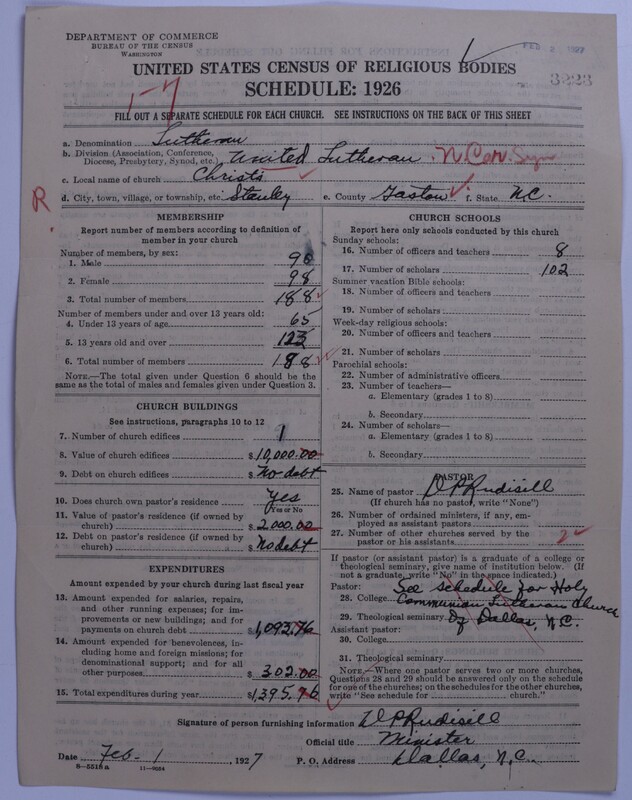 DEPARTMENT OF COMMERCE
BUREAU OF THE CENSUS
WASHINGTON
FEB 2 1927
3223
UNITED STATES CENSUS OF RELIGIOUS BODIES
SCHEDULE: 1926
1-7
FILL OUT A SEPARATE SCHEDULE FOR EACH CHURCH. SEE INSTRUCTIONS ON THE BACK OF THIS SHEET
a. Denomination Lutheran
b. Division (Association, Conference, Diocese, Presbytery, Synod, etc.) United Lutheran N. Car. Syn
c. Local name of church Christs
R.
d. City, town, village, or township, etc. Stanley e. County Gaston f. State N.C.
MEMBERSHIP
Report number of members according to definition of member in your church
Number of members, by sex:
1. Male 90
2. Female 98
3. Total number of members 188
Number of members under and over 13 years old:
4. Under 13 years of age 65
5. 13 years old and over 123
6. Total number of members 188
NOTE.—The total given under Question 6 should be the same as the total of males and females given under Question 3.
CHURCH BUILDINGS
See instructions, paragraphs 10 to 12
7. Number of church edifices 1
8. Value of church edifices $10,000.00
9. Debt on church edifices $ No debt
10. Does church own pastor's residence Yes
(Yes or No)
11. Value of pastor's residence (if owned by church) $2,000.00
12. Debt on pastor's residence (if owned by church) $ No debt
EXPENDITURES
Amount expended by your church during last fiscal year
13. Amount expended for salaries, repairs, and other running expenses; for improvements or new buildings; and for payments on church debt $1,093.76
14. Amount expended for benevolences, including home and foreign missions; for denominational support; and for all other purposes $302.00
15. Total expenditures during year $1,395.76
CHURCH SCHOOLS
Report here only schools conducted by this church
Sunday schools:
16. Number of officers and teachers 8
17. Number of scholars 102
Summer vacation Bible schools:
18. Number of officers and teachers
19. Number of scholars
Week-day religious schools:
20. Number of officers and teachers
21. Number of scholars
Parochial schools:
22. Number of administrative officers
23. Number of teachers—
a. Elementary (grades 1 to 8)
b. Secondary
24. Number of scholars—
a. Elementary (grades 1 to 8)
b. Secondary
PASTOR
25. Name of pastor D P Rudisill
(If church has no pastor, write "None")
26. Number of ordained ministers, if any, employed as assistant pastors
27. Number of other churches served by the pastor or his assistants 2
If pastor (or assistant pastor) is a graduate of a college or theological seminary, give name of institution below. (If not a graduate, write "No" in the space indicated.)
Pastor: See schedule for Holy
28. College Communion Lutheran Church
29. Theological seminary Of Dallas, N.C.
Assistant pastor:
30. College
31. Theological seminary
NOTE.—Where one pastor serves two or more churches, Questions 28 and 29 should be answered only on the schedule for one of the churches; on the schedules for the other churches, write "See schedule for ........ church."
Signature of person furnishing information D P Rudisill
Official title Minister
Date Feb. 1, 1927 P. O. Address Dallas, N.C.
8—5519 a 11—9554